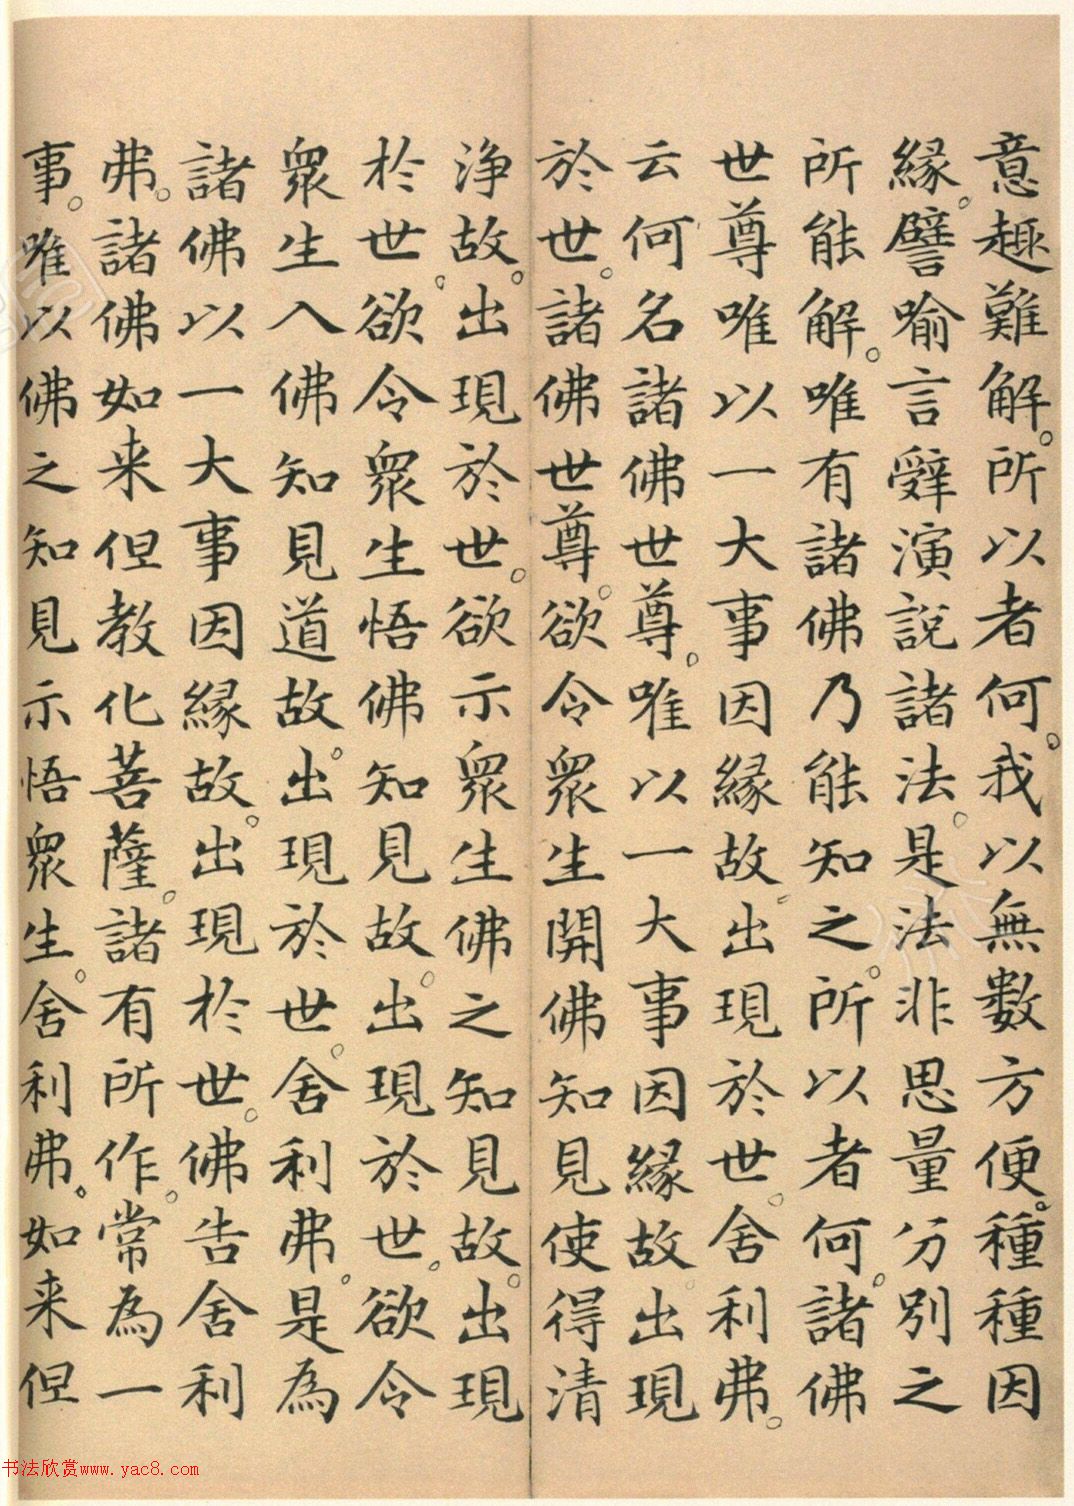 意趣難解。所以者何。我以無數方便。種種因
緣。譬喻言辭演說諸法。是法非思量分別之
所能解。唯有諸佛乃能知之。所以者何。諸佛
世尊唯以一大事因緣故。出現於世。舍利弗。
云何名諸佛世尊。唯以一大事因緣故出現
於世。諸佛世尊。欲令眾生開佛知見使得清
淨故。出現於世。欲示眾生佛之知見故。出現
於世。欲令眾生悟佛知見故。出現於世。欲令
眾生入佛知見道故。出現於世。舍利弗。是為
諸佛以一大事因緣故。出現於世。佛告舍利
弗。諸佛如来但教化菩薩。諸有所作。常為一
事。唯以佛之知見示悟眾生。舍利弗。如来但
书法欣赏www.yac8.com